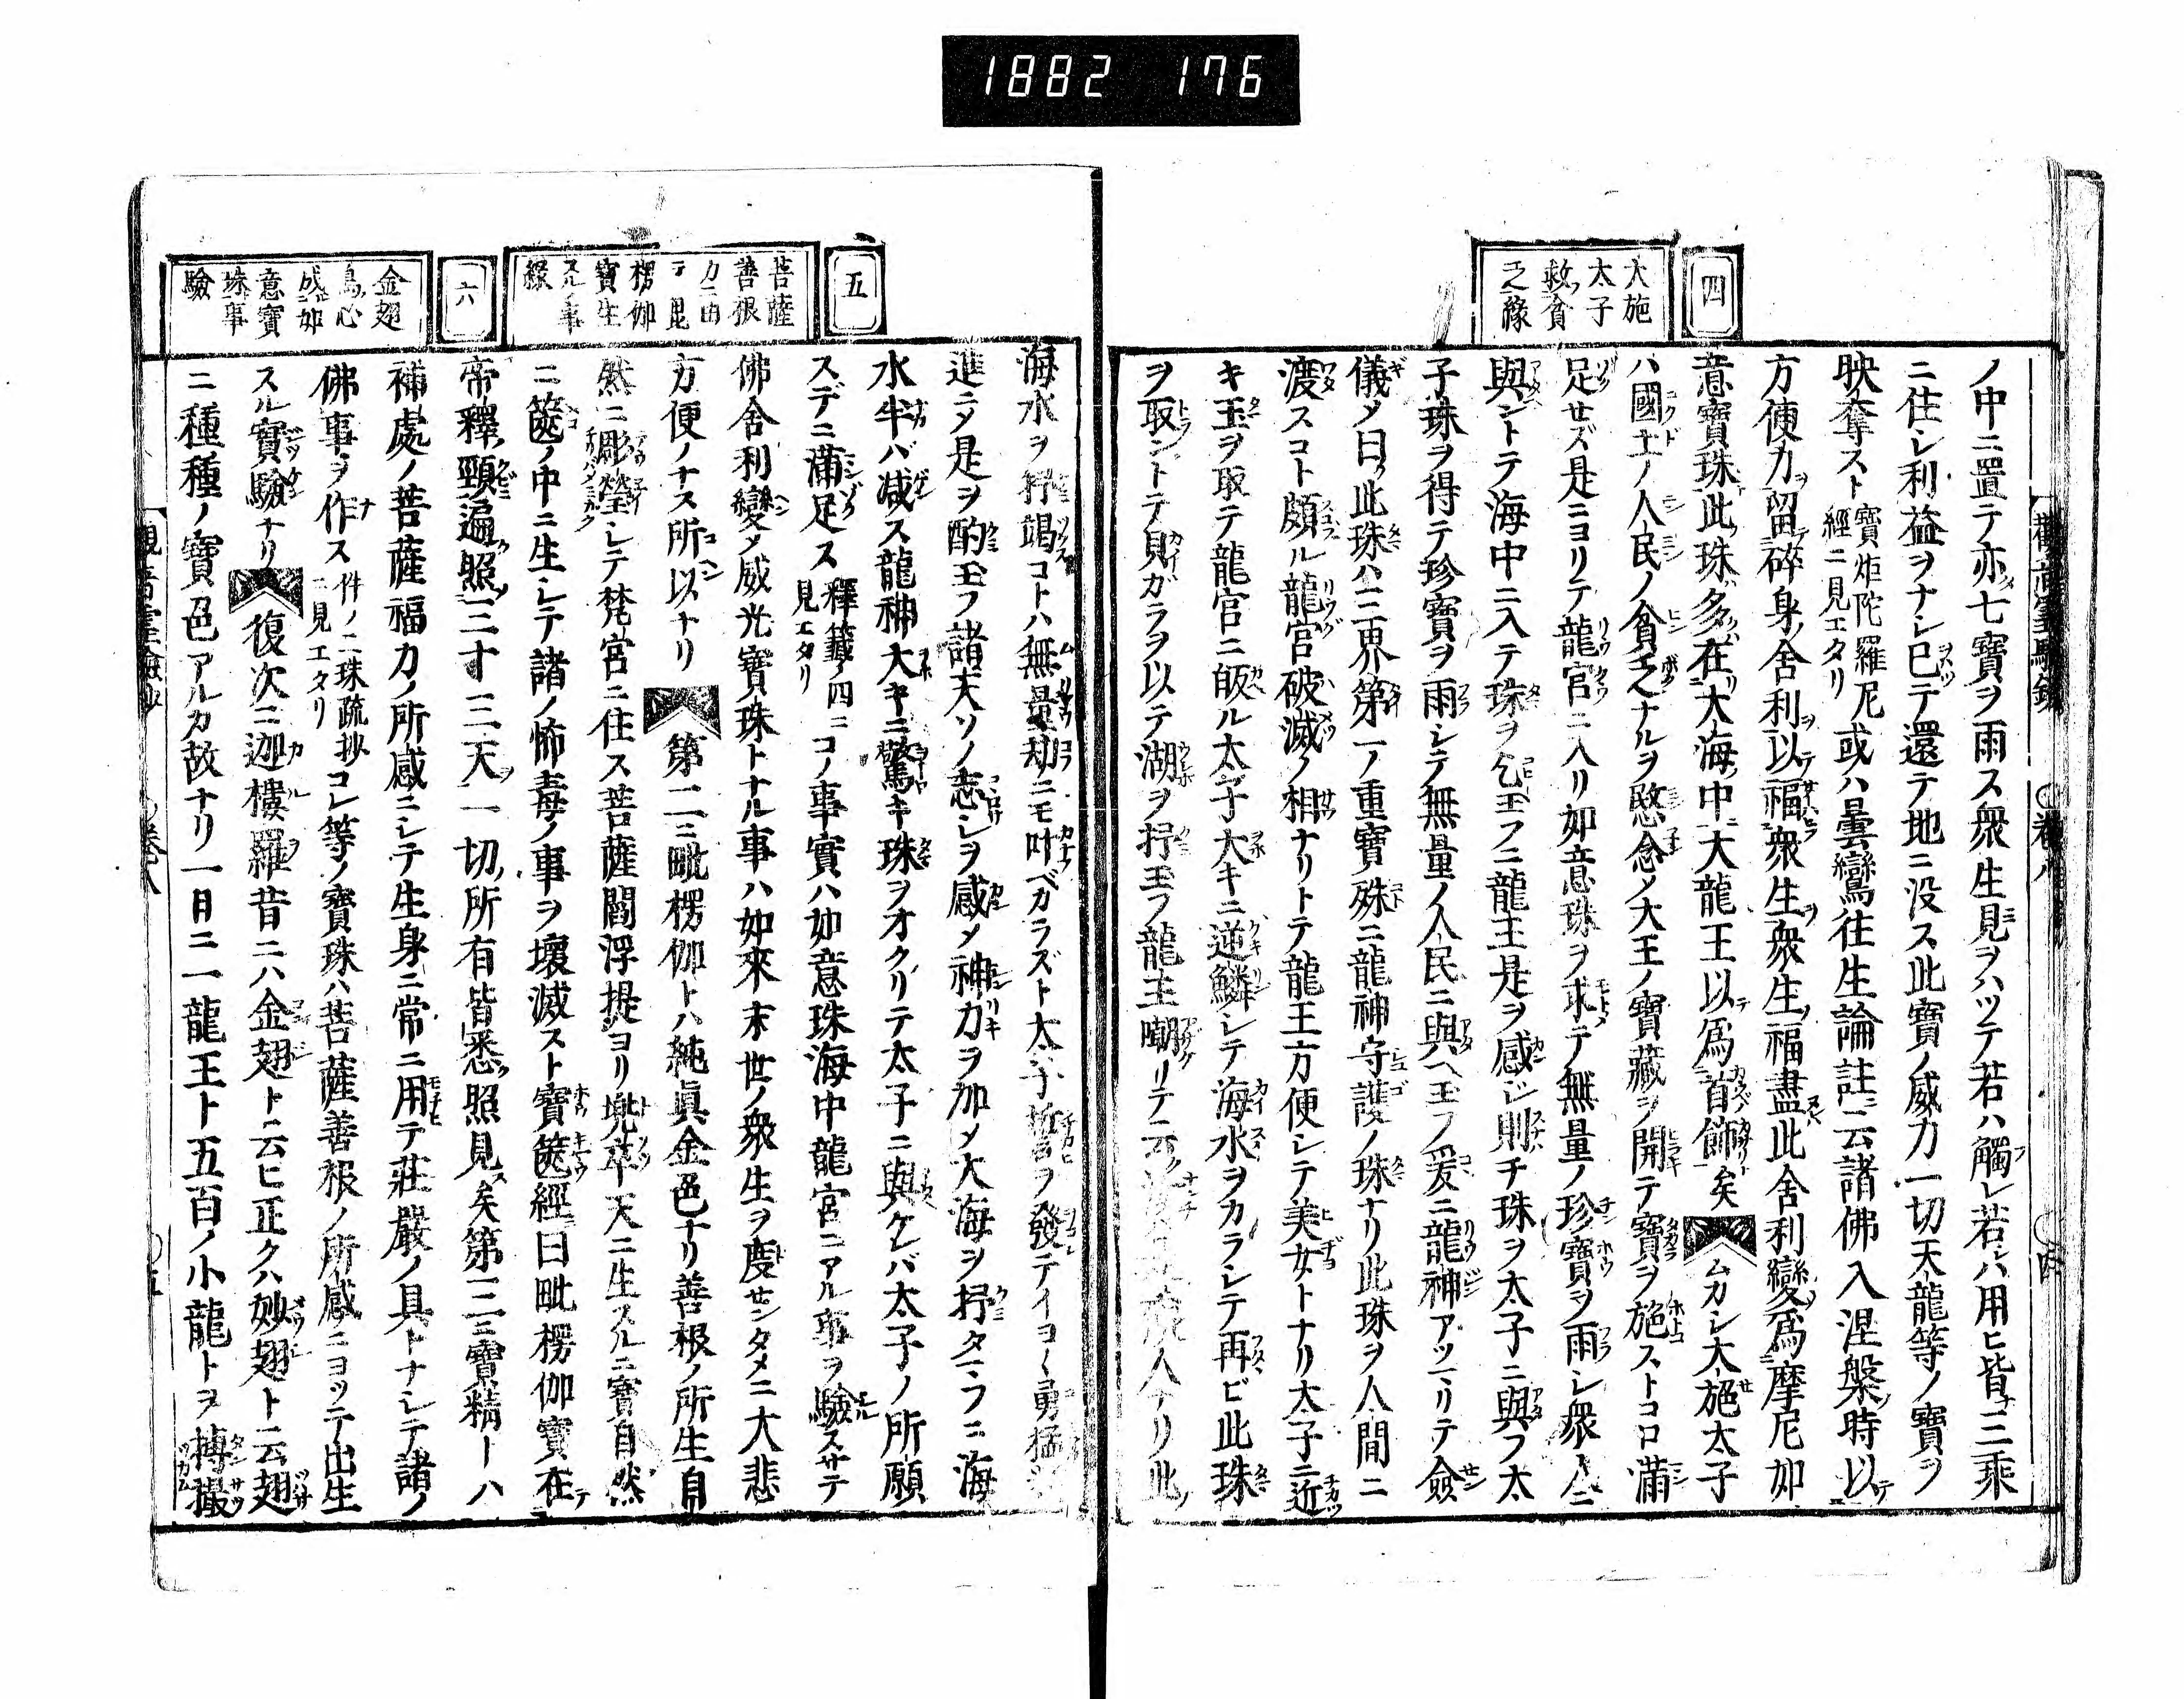 1882 176
四
大施
太子
救貧
乏緣
ノ中ニ置テ亦七寶ヲ雨ス衆生見ヲハツテ若ハ觸レ若ハ用ヒ皆三乘
ニ住シ利益ヲナシ已テ還テ地ニ没ス此寶ノ威力一切天龍等ノ寶ヲ
映奪スト寶炬陀羅尼經ニ見エタリ或ハ曇鸞往生論註ニ云諸佛入涅槃時以テ
方便力ヲ留碎身舍利ヲ以テ福衆生ヲ衆生ノ福盡此舍利變爲摩尼如
意寶珠此珠多在大海中大龍王以テ爲首飾矣ムカシ大施太子
ハ國土ノ人民ノ貧乏ナルヲ愍念メ大王ノ寶藏ヲ開テ寶ヲ施ストコロ滿
足セズ是ニヨリテ龍宮ニ入リ如意珠ヲ求テ無量ノ珍寶ヲ雨シ衆人ニ
與ントテ海中ニ入テ珠ヲ乞玉フニ龍王是ヲ感ジ則チ珠ヲ太子ニ與フ太
子珠ヲ得テ珍寶ヲ雨シテ無量ノ人民ニ與ヘ玉フ爰ニ龍神アツマリテ僉
儀メ曰ク此珠ハ三界第一ノ重寶殊ニ龍神守護ノ珠ナリ此珠ヲ人間ニ
渡スコト頗ル龍宮破滅ノ相ナリトテ龍王方便シテ美女トナリ太子ニ近
キ玉ヲ取テ龍宮ニ皈ル太子大キニ逆鱗シテ海水ヲカラシテ再ビ此珠
ヲ取ントテ貝ガラヲ以テ湖ヲ抒玉フ龍王嘲リテ云人ナリ此
五
菩薩
善根
力ニ由
テ毘
楞伽
寶生
スル事
緣
六
金翅
鳥心
成如
意寶
珠事
驗
海水ヲ抒竭コトハ無量劫ニモ叶ベカラズト太子誓ヲ發テイヨ〱勇猛
進ニメ是ヲ酌玉フ諸天ソノ志シヲ感メ神力ヲ加メ大海ヲ抒タマフニ海
水半バ減ス龍神大キニ驚キ珠ヲオクリテ太子ニ與ケレバ太子ノ所願
スデニ滿足ス釋籤ノ四ニ見エタリコノ事實ハ如意珠海中龍宮ニアル事ヲ驗スサテ
佛舍利變メ威光寶珠トナル事ハ如來末世ノ衆生ヲ度センタメニ大悲
方便ノナス所以ナリ第二ニ毗楞伽トハ純眞金色ナリ善根ノ所生自
然ニ彫瑩シテ梵宮ニ住ス菩薩閻浮提ヨリ兜率天ニ生スルニ寶自然
ニ篋ノ中ニ生シテ諸ノ怖毒ノ事ヲ壞滅スト寶篋經曰毗楞伽寶在テ
帝釋頸遍照三十三天ヲ一切所有皆悉照見ス矣第三ニ寶精ーハ
補處ノ菩薩福力ノ所感ニシテ生身ニ常ニ用テ莊嚴ノ具トナシテ諸ノ
佛事ヲ作ス件ノ二珠疏抄ニ見エタリコレ等ノ寶珠ハ菩薩善根ノ所感ニヨツテ出生
スル實驗ナリ復次ニ迦樓羅昔ニハ金翅ト云ヒ正クハ妙翅ト云翅
ニ種種ノ寶色アルカ故ナリ一日ニ一龍王ト五百ノ小龍トヲ搏撮